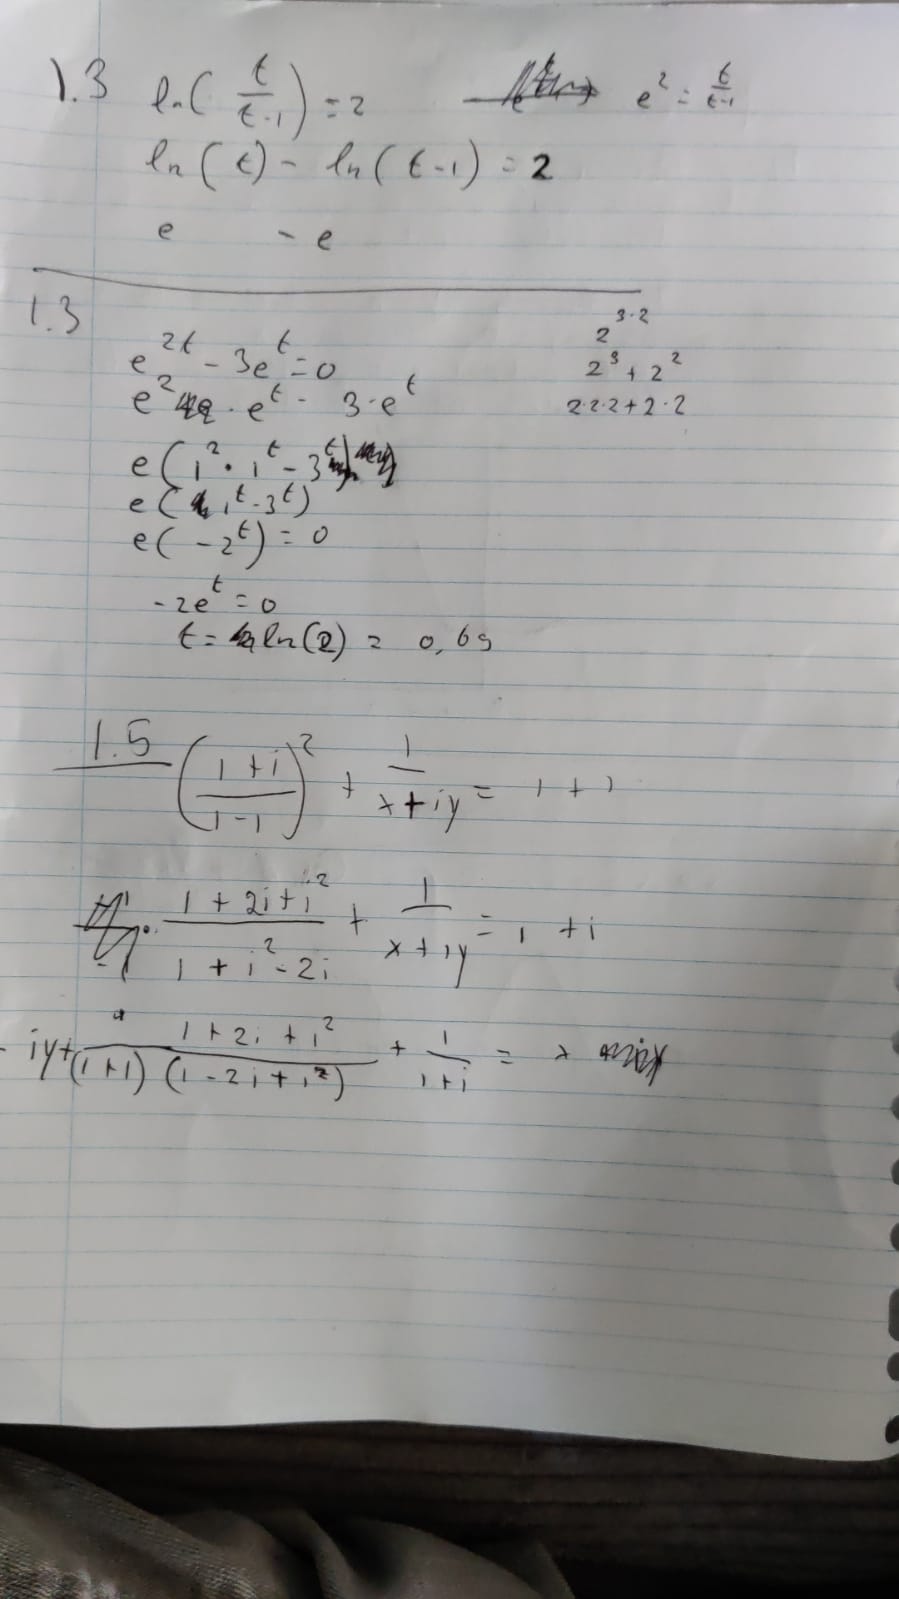 1.3 ln(t/(t-1)) = 2 e² = t/(t-1)
ln(t) - ln(t-1) = 2
e - e
1.3
e^(2t) - 3e^t = 0
e² · e^t - 3·e^t
e(1² · 1^t - 3^t)
e(1^t - 3^t)
e(-2^t) = 0
-2e^t = 0
t = ln(2) = 0,69
2^(3·2)
2³ + 2²
2·2·2+2·2
1.5 ((1+i)/(1-1))² + 1/(x+iy) = 1 + i
(1 + 2i + i²)/(1 + i² - 2i) + 1/(x+iy) = 1 + i
- iy + (1 + 2i + i²)/((1+1)(1-2i+i²)) + 1/(1+i) = x